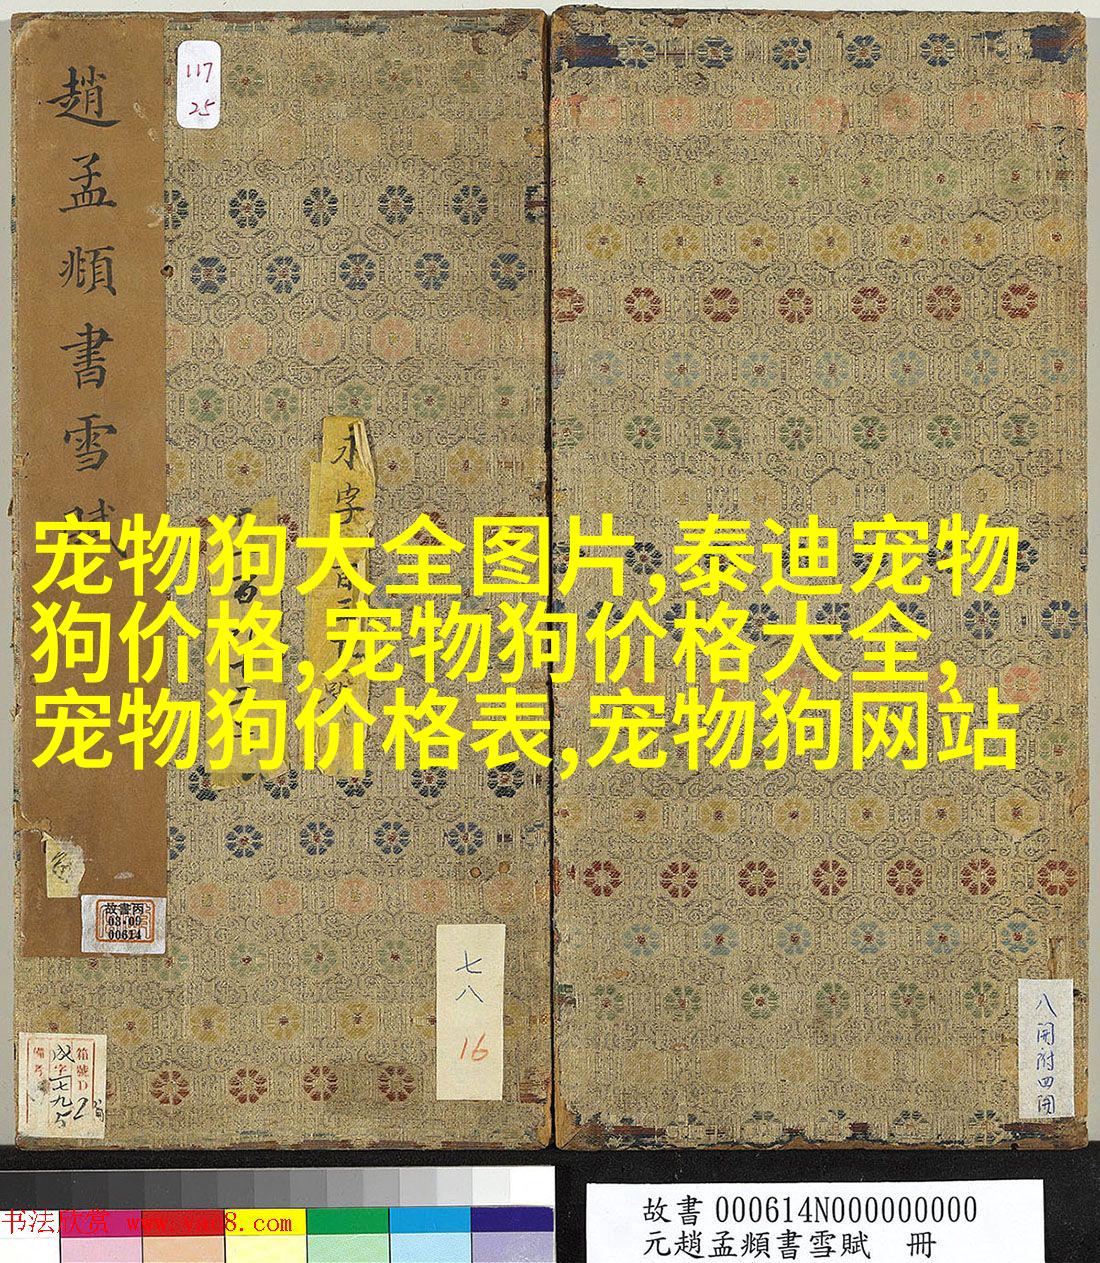 趙孟頫書雪賦
117
25
永字
宠物狗大全图片,泰迪宠物
狗价格,宠物狗价格大全,
宠物狗价格表,宠物狗网站
故書丙
03-09
00614
七八
16
箱號D
備考
八開附四開
书法欣赏
故書000614N000000000
元趙孟頫書雪賦 冊